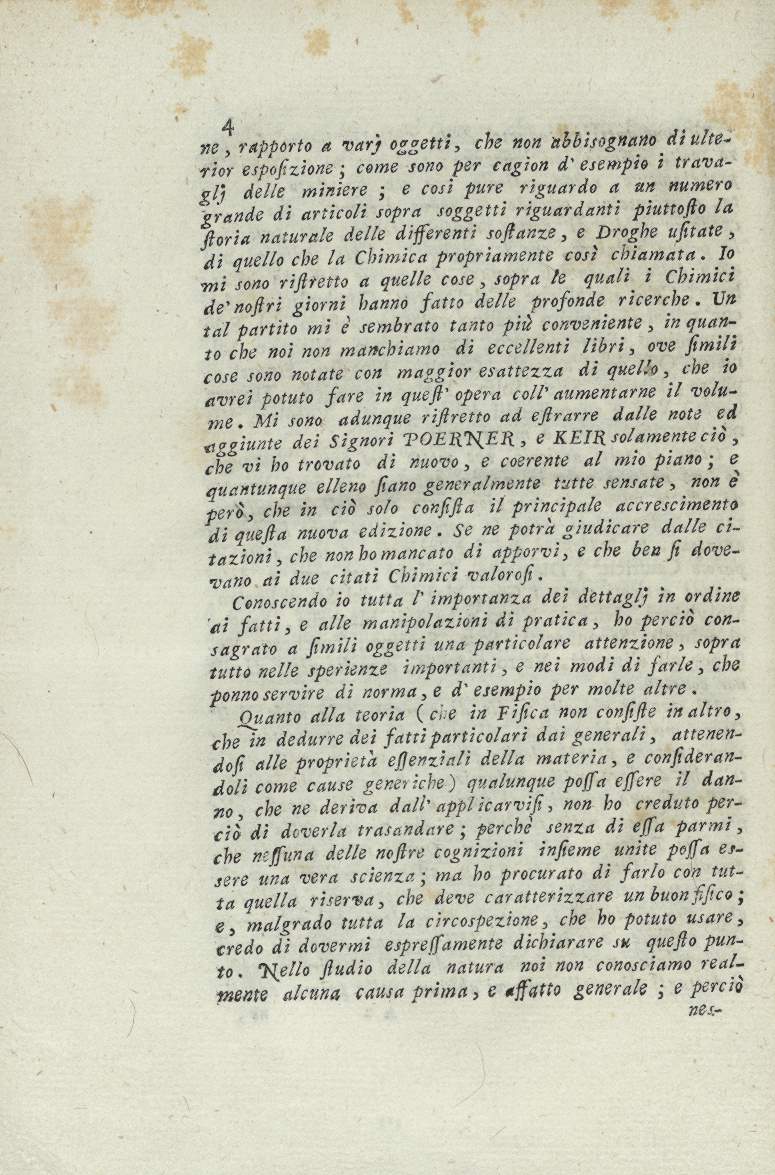 4
ne, rapporto a varj oggetti, che non abbisognano di ulte-
rior esposizione; come sono per cagion d'esempio i trava-
glj delle miniere; e così pure riguardo a un numero
grande di articoli sopra soggetti riguardanti piuttosto la
storia naturale delle differenti sostanze, e Droghe usitate,
di quello che la Chimica propriamente così chiamata. Io
mi sono ristretto a quelle cose, sopra le quali i Chimici
de' nostri giorni hanno fatto delle profonde ricerche. Un
tal partito mi è sembrato tanto più conveniente, in quan-
to che noi non manchiamo di eccellenti libri, ove simili
cose sono notate con maggior esattezza di quello, che io
avrei potuto fare in quest' opera coll' aumentarne il volu-
me. Mi sono adunque ristretto ad estrarre dalle note ed
aggiunte dei Signori POERNER, e KEIR solamente ciò,
che vi ho trovato di nuovo, e coerente al mio piano; e
quantunque elleno siano generalmente tutte sensate, non è
però, che in ciò solo consista il principale accrescimento
di questa nuova edizione. Se ne potrà giudicare dalle ci-
tazioni, che non ho mancato di apporvi, e che ben si dove-
vano ai due citati Chimici valorosi.
Conoscendo io tutta l' importanza dei dettaglj in ordine
ai fatti, e alle manipolazioni di pratica, ho perciò con-
sagrato a simili oggetti una particolare attenzione, sopra
tutto nelle sperienze importanti, e nei modi di farle, che
ponno servire di norma, e d' esempio per molte altre.
Quanto alla teoria (che in Fisica non consiste in altro,
che in dedurre dei fatti particolari dai generali, attenen-
dosi alle proprietà essenziali della materia, e consideran-
doli come cause generiche) qualunque possa essere il dan-
no, che ne deriva dall' applicarvisi, non ho creduto per-
ciò di doverla trasandare; perchè senza di essa parmi,
che nessuna delle nostre cognizioni insieme unite possa es-
sere una vera scienza; ma ho procurato di farlo con tut-
ta quella riserva, che deve caratterizzare un buon fisico;
e, malgrado tutta la circospezione, che ho potuto usare,
credo di dovermi espressamente dichiarare su questo pun-
to. Nello studio della natura noi non conosciamo real-
mente alcuna causa prima, e affatto generale; e perciò
nes-